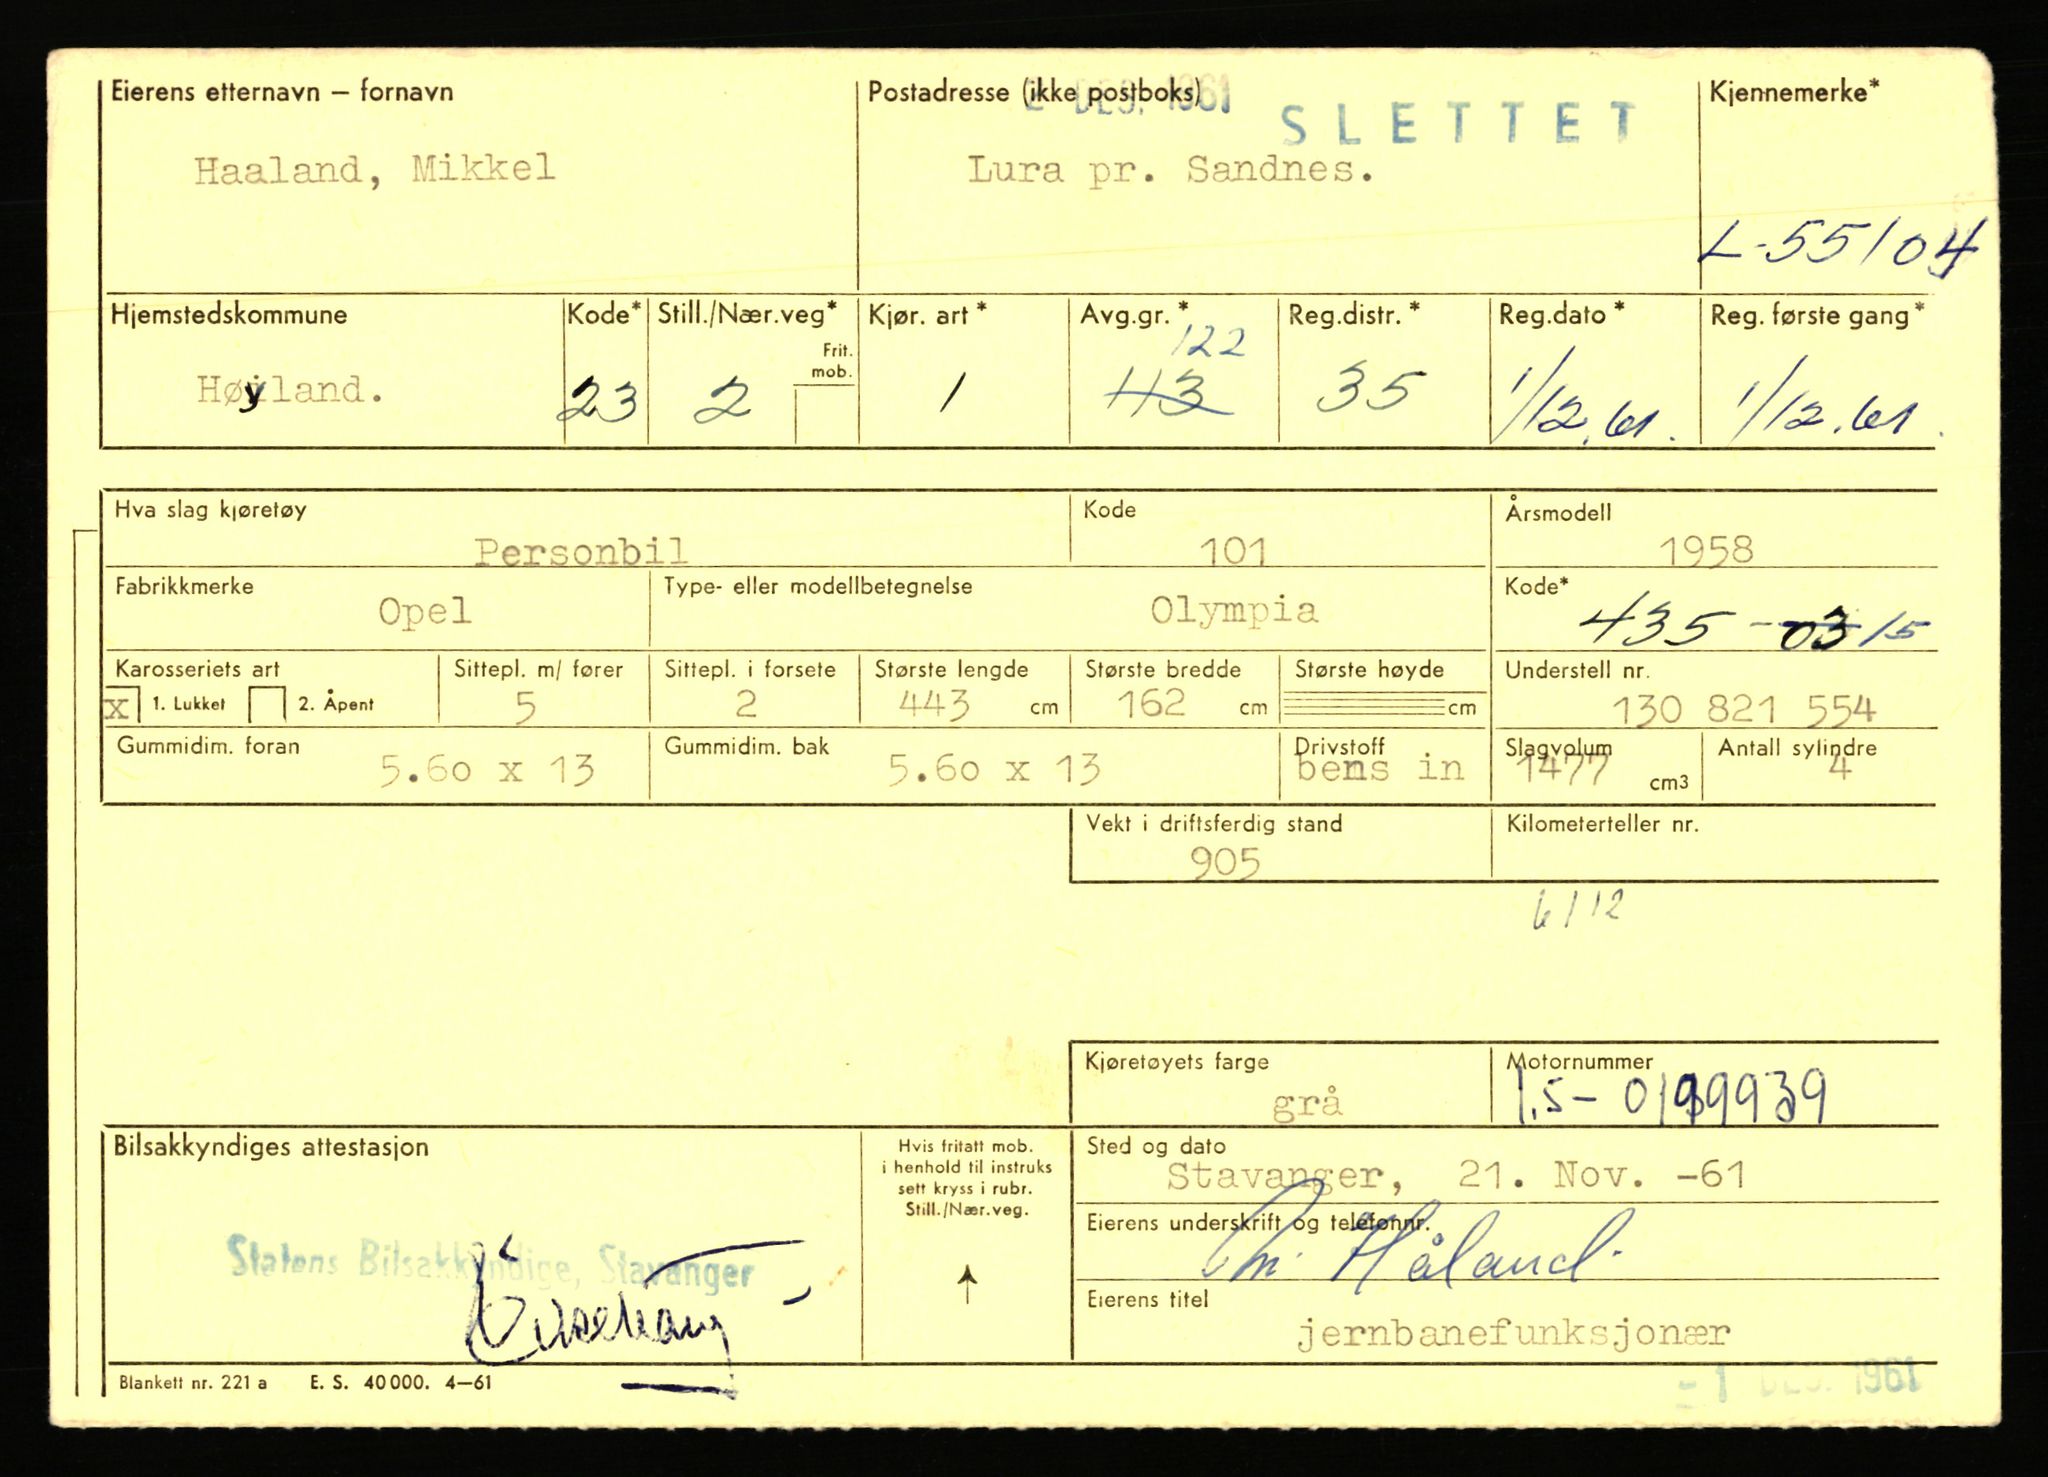 Eierens etternavn – fornavn
Haaland, Mikkel
Postadresse (ikke postboks)
DES. 1961
SLETTET
Lura pr. Sandnes.
Kjennemerke*
L-55104
Hjemstedskommune
Høyland.
Kode*
23
Still./Nær.veg*
2
Frit.
mob.
Kjør. art*
1
Avg.gr.*
122
43
Reg.distr.*
35
Reg.dato*
1/12.61.
Reg. første gang*
1/12.61.
Hva slag kjøretøy
Personbil
Kode
101
Årsmodell
1958
Fabrikkmerke
Opel
Type- eller modellbetegnelse
Olympia
Kode*
435-03 15
Karosseriets art
x 1. Lukket 2. Åpent
Sittepl. m/ fører
5
Sittepl. i forsete
2
Største lengde
443 cm
Største bredde
162 cm
Største høyde
cm
Understell nr.
130 821 554
Gummidim. foran
5.60 x 13
Gummidim. bak
5.60 x 13
Drivstoff
bensin
Slagvolum
1477 cm3
Antall sylindre
4
Vekt i driftsferdig stand
905
Kilometerteller nr.
6/12
Kjøretøyets farge
grå
Motornummer
1,5-0199939
Bilsakkyndiges attestasjon
Statens Bilsakkyndige, Stavanger
Hvis fritatt mob.
i henhold til instruks
sett kryss i rubr.
Still./Nær.veg.
Sted og dato
Stavanger, 21. Nov. -61
Eierens underskrift og telefonnr.
M. Håland.
Eierens titel
jernbanefunksjonær
Blankett nr. 221 a E. S. 40 000. 4–61
- 1 DES. 1961